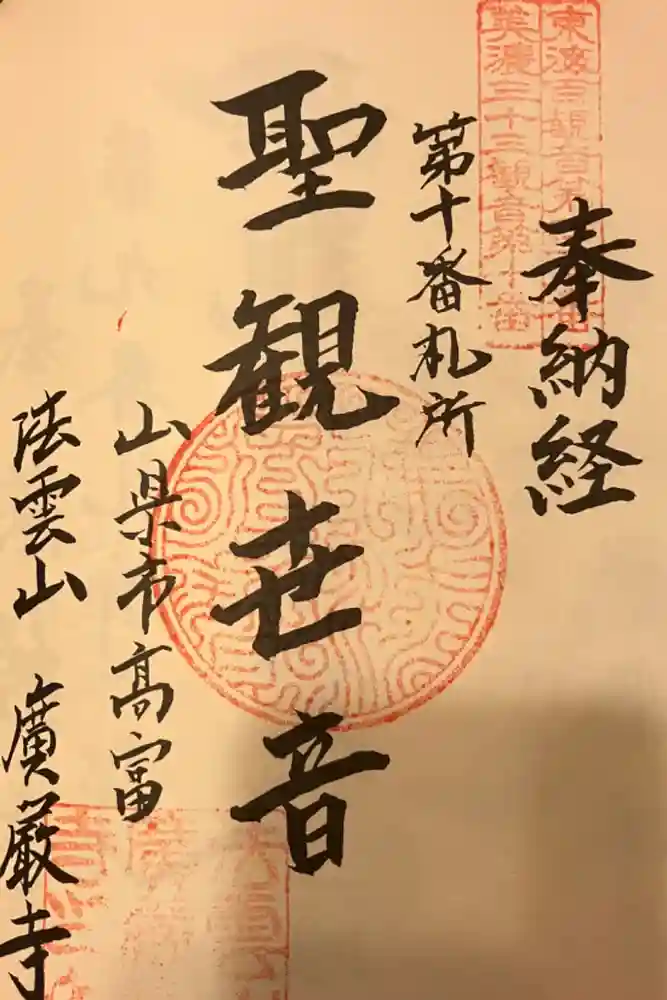 奉納経
東海百観音第
美濃三十三観音第十番
第十番札所
聖観世音
山県市高富
法雲山 廣厳寺